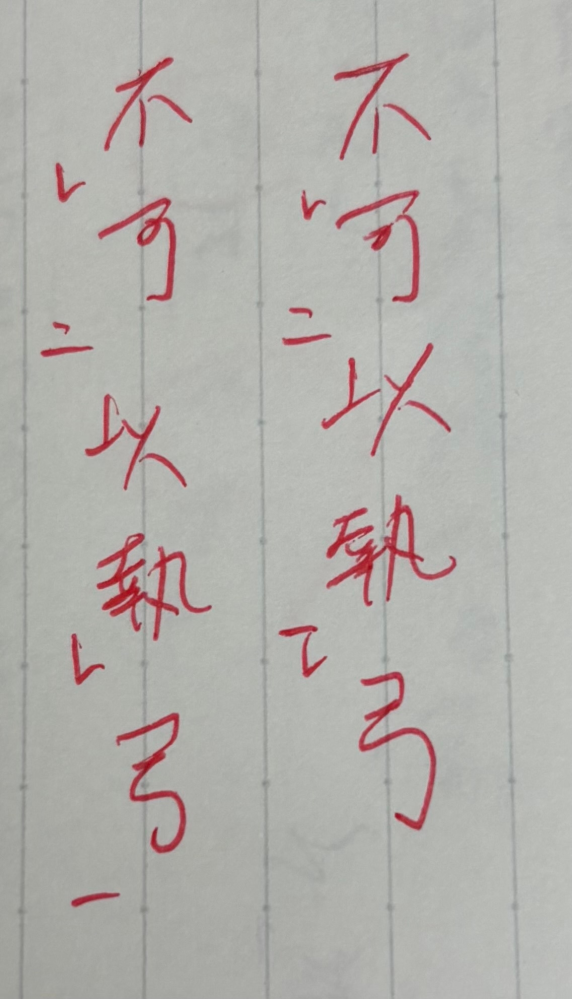 不レ可二以執一レ弓
不レ可二以執レ弓一